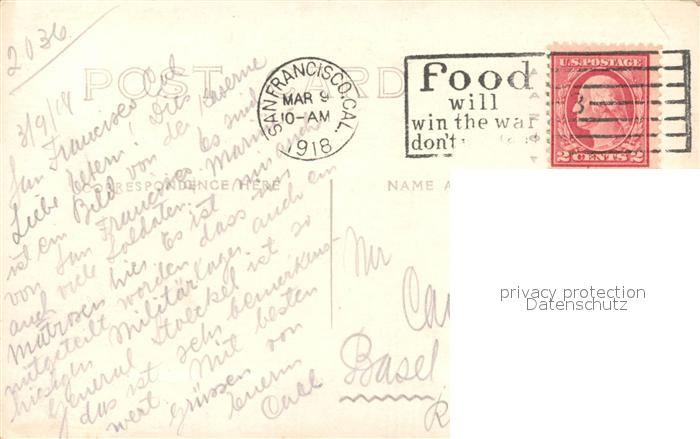 2036
POST CARD
SAN FRANCISCO, CAL.
MAR 9
10-AM
1918
Food
will
win the war
don't
U.S. POSTAGE
2 CENTS 2
CORRESPONDENCE HERE
NAME A
3/9/18
San Francisco Cal
Liebe Eltern! Dies
ist ein Bild von der Kaserne
von San Francisco. Es sind
auch viele Soldaten. Marine
Matrosen hier. Es ist mir auch
mitgeteilt worden dass im
hiesigen Militärlager auch ein
General Stoeckel ist so
das ist sehr bemerkens
wert. Mit besten
Grüssen von
Euerm
Carl
Mr
Ca
Basel
privacy protection
Datenschutz